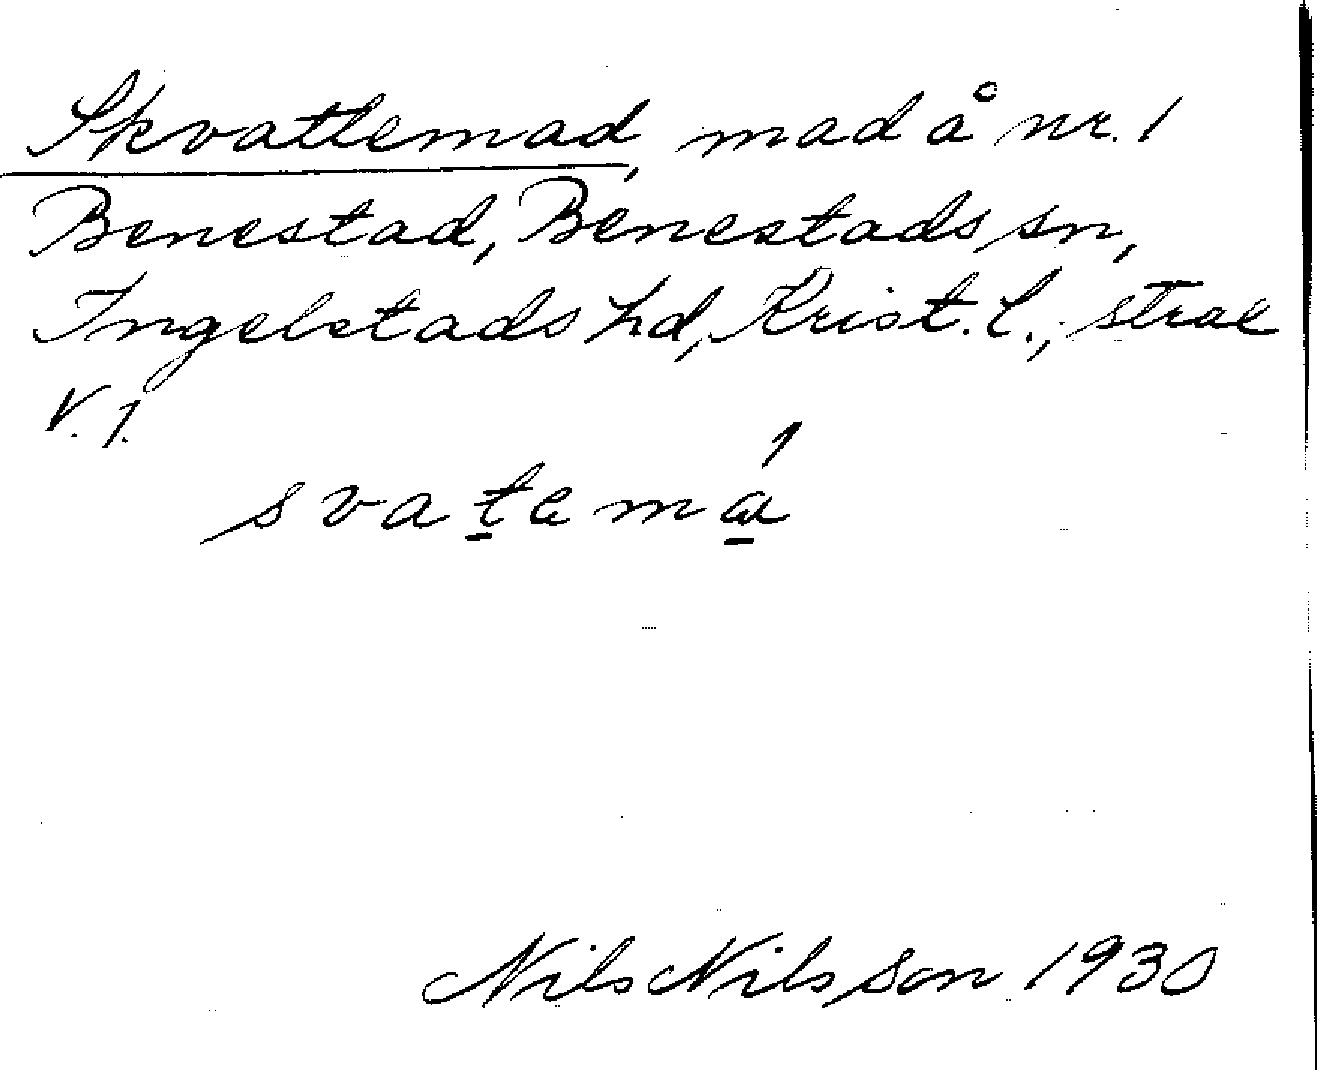 Skvattemad, mad å nr. 1
Benestad, Benestads sn,
Ingelstads hd, Krist. l.; strax
V. 1.
Nils Nilsson 1930